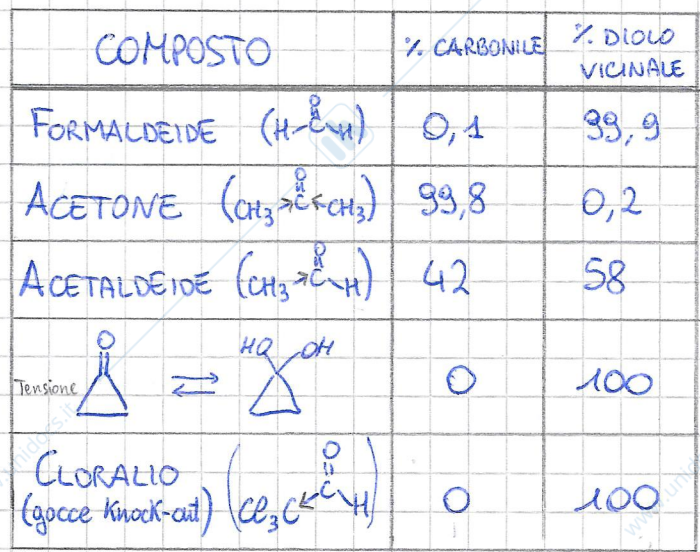 COMPOSTO
% CARBONILE
% DIOLO
VICINALE
FORMALDEIDE (H-C-H)
O
0,1
99,9
ACETONE (CH3→C←CH3)
O
99,8
0,2
ACETALDEIDE (CH3→C-H)
O
42
58
Tensione
O
HO OH
0
100
CLORALIO
(gocce Knock-out)
O
(Cl3C←C-H)
0
100